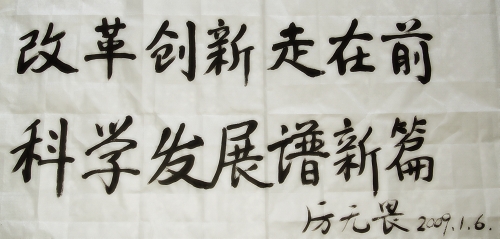 改革创新走在前
科学发展谱新篇
厉无畏 2009.1.6.